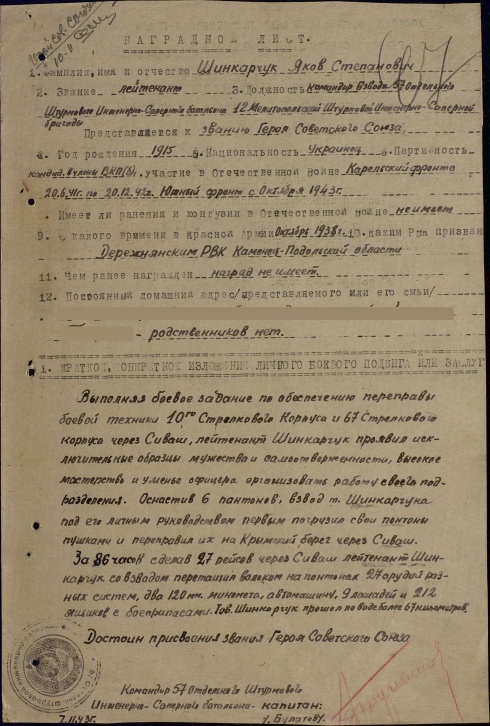 НАГРАДНОЙ ЛИСТ.
1. Фамилия, имя и отчество Шинкарчук Яков Степанович
2. Звание лейтенант 3. Должность командир взвода 57 отдельного
Штурмового Инженерно-Саперного батальона 12 Мелитопольской Штурмовой Инженерно-Саперной
бригады
Представляется к званию Героя Советского Союза
4. Год рождения 1915 5. Национальность Украинец 6. Партийность
кандид. в члены ВКП(б), участие в Отечественной войне Карельский фронт
20.6.41г. по 20.12.42г. Южный фронт с Октября 1943г.
Имеет ли ранения и контузии в Отечественной войне не имеет
9. С какого времени в красной армии Октября 1938г. 10. каким РВК призван
Дережнянским РВК Каменец-Подольской области
11. Чем ранее награжден наград не имеет.
12. Постоянный домашний адрес/представляемого или его семьи/
- родственников нет.
1. КРАТКОЕ, КОНКРЕТНОЕ ИЗЛОЖЕНИЕ ЛИЧНОГО БОЕВОГО ПОДВИГА ИЛИ ЗАСЛУГ
Выполняя боевое задание по обеспечению переправы
боевой техники 10го Стрелкового Корпуса и 67 Стрелкового
корпуса через Сиваш, лейтенант Шинкарчук проявил иск-
лючительные образцы мужества и самоотверженности, высокое
мастерство и уменье офицера организовать работу своего под-
разделения. Оснастив 6 понтонов, взвод т. Шинкарчука
под его личным руководством первым погрузил свои понтоны
пушками и переправил их на Крымский берег через Сиваш.
За 36 часов сделав 27 рейсов через Сиваш лейтенант Шин-
карчук со взводом перетащил волоком на понтонах 27 орудий раз-
ных систем, два 120 мм. миномета, автомашину, 9 лошадей и 212
ящиков с боеприпасами. Тов. Шинкарчук прошел по воде более 67 километров,
Достоин присвоения звания Героя Советского Союза
Командир 57 Отдельного Штурмового
Инженерно-Саперного батальона- капитан:
7.11.43г. /Булатов/.